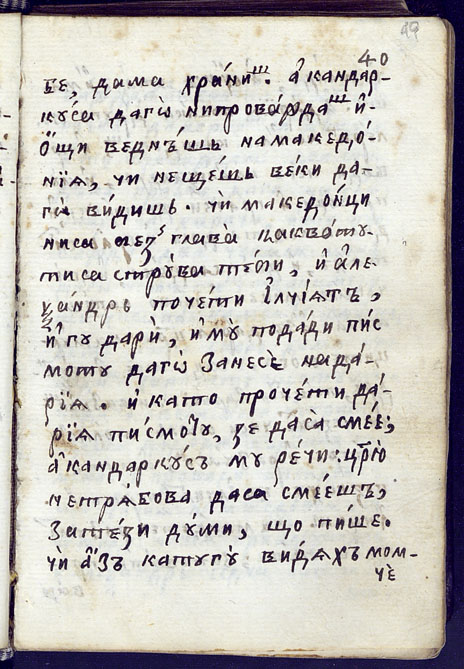 49
40
бе, дама храни́ш. а҆кандар-
ку́са дагѡ̀ нипрова́рдаш и҆-
ѻ҆щи веднъ́шь намакедо́-
нїѧ, чи нещешь ве́ки да-
гѡ̀ ви́дишь. чѝ македо́нци
ниса без глава̀ каквоту-
тиса стру́ва те́би, и҆ а҆ле-
ѯа́ндрь поче́ти і҆лчі́ѧтъ,
и҆ гу дарѝ, и҆мꙋ̀ пода́ди пис
моту дагѡ̀ занесѐ нада́-
рїѧ. и҆ като прочѐти да́-
рїѧ писмо́ту, зе даса̀ смеѐ;
а҆кандаркꙋ́съ му ре́чи. цр҃ю
нетрѧбова да́са смеешъ,
зати́ези ду́ми, що пи́ше.
чѝ а҆́зъ катугу̀ видѧхъ мом-
чѐ